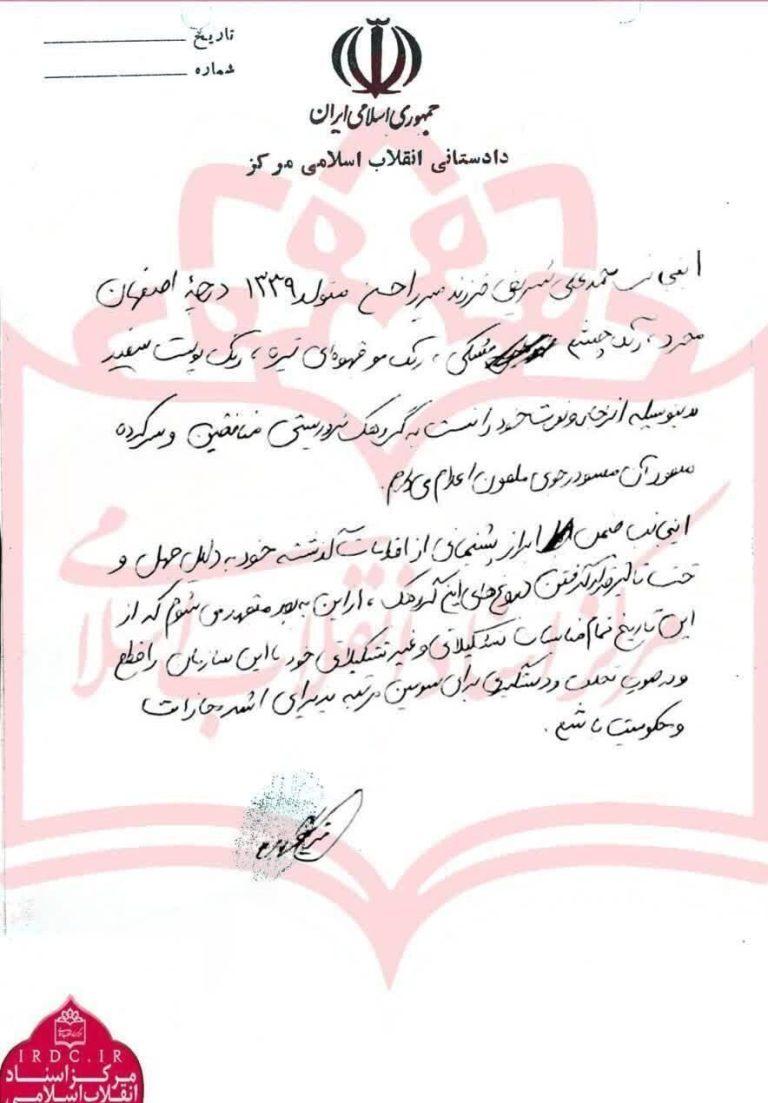 تاریخ
شماره
جمهوری اسلامی ایران
دادستانی انقلاب اسلامی مرکز
اینجانب محمدعلی شریفی فرزند میرزاحسن متولد ۱۳۳۹ درچۀ اصفهان
مجرد، رنگ چشم مشکی، رنگ مو قهوه‌ای تیره، رنگ پوست سفید
بدینوسیله انزجار و نفرت خود را نسبت به گروهک تروریستی منافقین و سرکرده
آن مسعود رجوی ملعون اعلام می‌دارم.
اینجانب ضمن ابراز پشیمانی از اقدامات گذشته خود به دلیل جهل و
تحت تاثیر قرار گرفتن دروغ‌های این گروهک، از این به بعد متعهد می‌شوم که از
این تاریخ تمام مناسبات تشکیلاتی و غیر تشکیلاتی خود با این سازمان را قطع
و در صورت تخلف و دستگیری برای سومین مرتبه پذیرای اشد مجازات
و محکومیت باشم.
IRDC.IR
مرکز اسناد
انقلاب اسلامی
مرکز اسناد انقلاب اسلامی